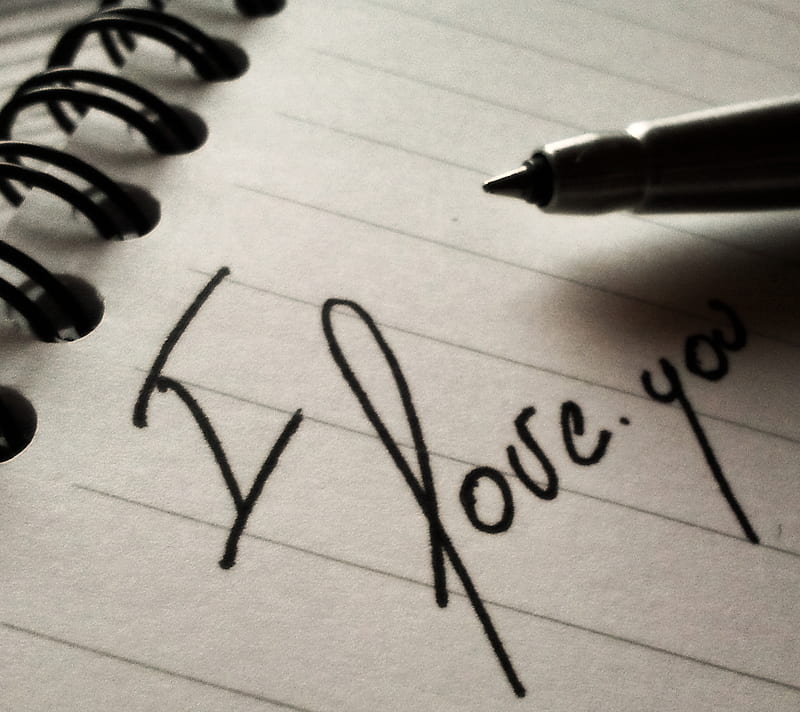 I love. you